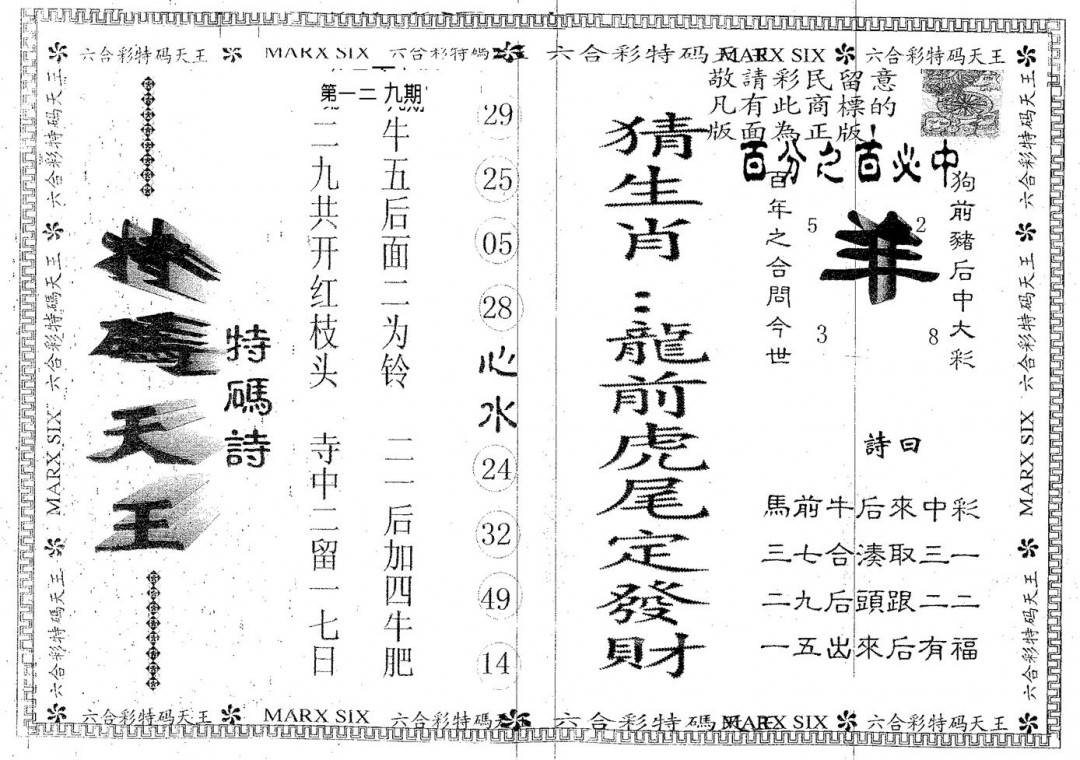 六合彩特码天王 MARX SIX 六合彩特碼 六合彩特码天王 MARX SIX 六合彩特码天王
敬請彩民留意
凡有此商標的
版面為正版!
百分之百必中
狗前豬后中大彩
羊
5 2
3 8
百年之合問今世
詩曰
馬前牛后來中彩
三七合湊取三一
二九后頭跟二二
一五出來后有福
猜生肖:龍前虎尾定發財
29
25
05
28
心水
24
32
49
14
第一二九期
牛五后面二为铃 二一后加四牛肥
二九共开红枝头 寺中二留一七日
特碼詩
特碼天王
六合彩特码天王 六合彩特碼天王 MARX SIX 六合彩特码天王
六合彩特码天王 六合彩特碼天王 MARX SIX 六合彩特码天王
六合彩特码天王 MARX SIX 六合彩特碼天 六合彩特碼 MARX SIX 六合彩特码天王